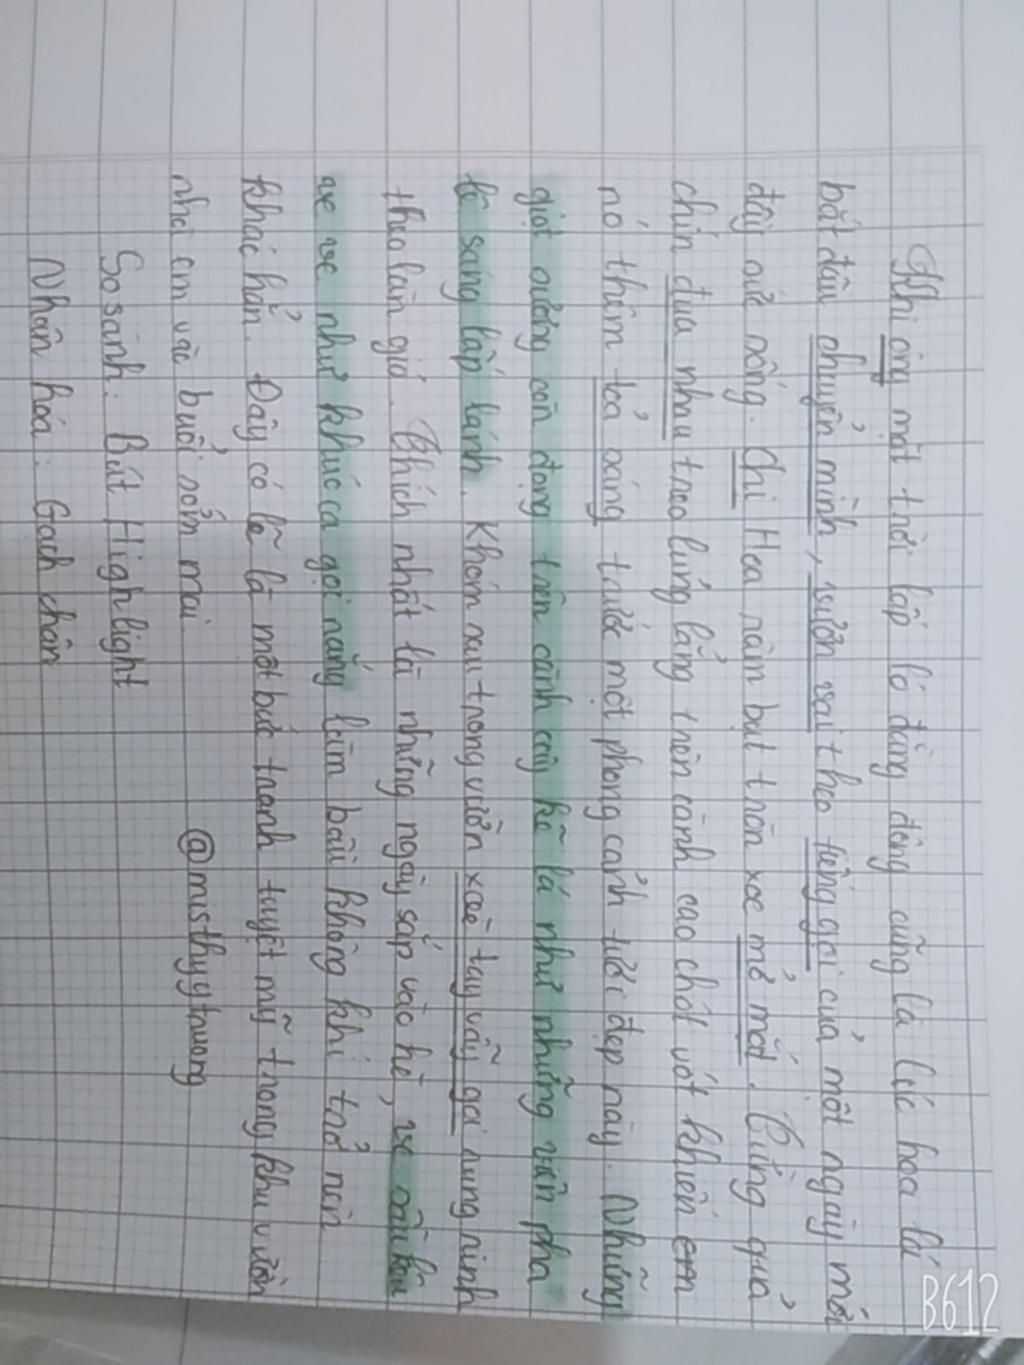 Khi ông mặt trời lấp ló đằng đông cũng là lúc hoa lá
bắt đầu chuyển mình, vươn vai theo tiếng gọi của một ngày mới
đầy sức sống. Chị Hoa râm bụt tròn xoe mở mắt. Từng quả
chín đua nhau treo lủng lẳng trên cành cao chót vót khiến em
nó thêm toả sáng trước một phong cảnh tươi đẹp này. Những
giọt sương còn đọng trên cành cây kẽ lá như những viên pha
lê sáng lấp lánh. Khóm rau trong vườn xoè tay vẫy gọi rung rinh
theo làn gió. Thích nhất là những ngày sắp vào hè, ve sầu kêu
ve ve như khúc ca gọi nắng làm bầu không khí trở nên
khác hẳn. Đây có lẽ là một bức tranh tuyệt mỹ trong khu vườn
nhà em vào buổi sớm mai.
@misthyytruong
So sánh: Bút Highlight
Nhân hoá: Gạch chân
B612